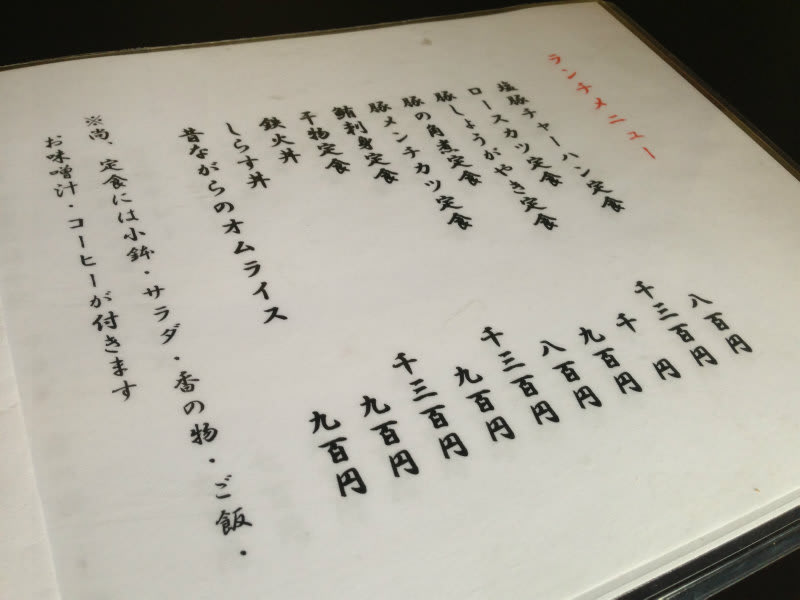 ランチメニュー
塩豚チャーハン定食 八百円
ロースカツ定食 千三百円
豚しょうがやき定食 千円
豚の角煮定食 九百円
豚メンチカツ定食 八百円
鮪刺身定食 千三百円
干物定食 九百円
鉄火丼 千三百円
しらす丼 九百円
昔ながらのオムライス 九百円
※尚、定食には小鉢・サラダ・香の物・ご飯・
お味噌汁・コーヒーが付きます